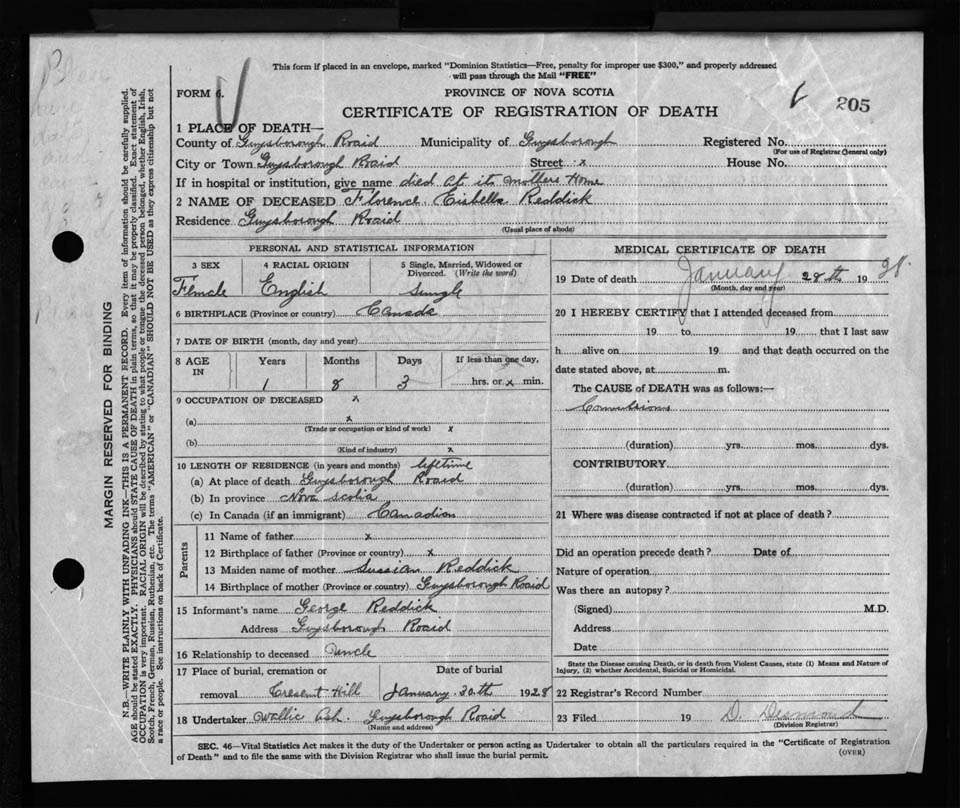 This form if placed in an envelope, marked "Dominion Statistics—Free, penalty for improper use $300," and properly addressed
will pass through the Mail "FREE"
FORM 6.
PROVINCE OF NOVA SCOTIA
6 205
CERTIFICATE OF REGISTRATION OF DEATH
1 PLACE OF DEATH—
County of Guysborough Roaid Municipality of Guysborough Registered No.
(For use of Registrar General only)
City or Town Guysborough Roaid Street x House No.
If in hospital or institution, give name died At it mothers Home
2 NAME OF DECEASED Florence Eisbella Reddick
Residence Guysborough Roaid
(Usual place of abode)
PERSONAL AND STATISTICAL INFORMATION
3 SEX 4 RACIAL ORIGIN 5 Single, Married, Widowed or Divorced. (Write the word)
Female English Single
6 BIRTHPLACE (Province or country) Canada
7 DATE OF BIRTH (month, day and year)
8 AGE IN Years Months Days If less than one day,
1 8 3 hrs. or x min.
9 OCCUPATION OF DECEASED x
(a) x
(Trade or occupation or kind of work) x
(b)
(Kind of industry) x
10 LENGTH OF RESIDENCE (in years and months) lifetime
(a) At place of death Guysborough Roaid
(b) In province Nova Scotia
(c) In Canada (if an immigrant) Canadian
Parents
11 Name of father x
12 Birthplace of father (Province or country) x
13 Maiden name of mother Sussian Reddick
14 Birthplace of mother (Province or country) Guysborough Roaid
15 Informant's name George Reddick
Address Guysborough Roaid
16 Relationship to deceased Uncle
17 Place of burial, cremation or Date of burial
removal Cresent Hill January 30th 1928
18 Undertaker Wallie Ash. Guysborough Roaid
(Name and address)
MEDICAL CERTIFICATE OF DEATH
19 Date of death January 28th 1928
(Month, day and year)
20 I HEREBY CERTIFY that I attended deceased from
19 to 19 that I last saw
h alive on 19 and that death occurred on the
date stated above, at m.
The CAUSE of DEATH was as follows:—
Convulsions
(duration) yrs. mos. dys.
CONTRIBUTORY
(duration) yrs. mos. dys.
21 Where was disease contracted if not at place of death?
Did an operation precede death? Date of
Nature of operation
Was there an autopsy?
(Signed) M.D.
Address
Date
State the Disease causing Death, or in death from Violent Causes, state (1) Means and Nature of
Injury, (2) whether Accidental, Suicidal or Homicidal.
22 Registrar's Record Number
23 Filed 19 D. Desmond
(Division Registrar)
SEC. 46—Vital Statistics Act makes it the duty of the Undertaker or person acting as Undertaker to obtain all the particulars required in the "Certificate of Registration
of Death" and to file the same with the Division Registrar who shall issue the burial permit.
(OVER)
MARGIN RESERVED FOR BINDING
N.B.—WRITE PLAINLY WITH UNFADING INK—THIS IS A PERMANENT RECORD. Every item of information should be carefully supplied.
AGE should be stated EXACTLY. PHYSICIANS should STATE CAUSE OF DEATH in plain terms, so that it may be properly classified. Exact statement of
OCCUPATION is very important. RACIAL ORIGIN will be described by stating to what people or tongue the deceased person belonged, whether English, Irish,
Scotch, French, German, Russian, Ruthenian, etc. The terms "AMERICAN" or "CANADIAN" SHOULD NOT BE USED as they express citizenship but not
a race or people. See instructions on back of Certificate.